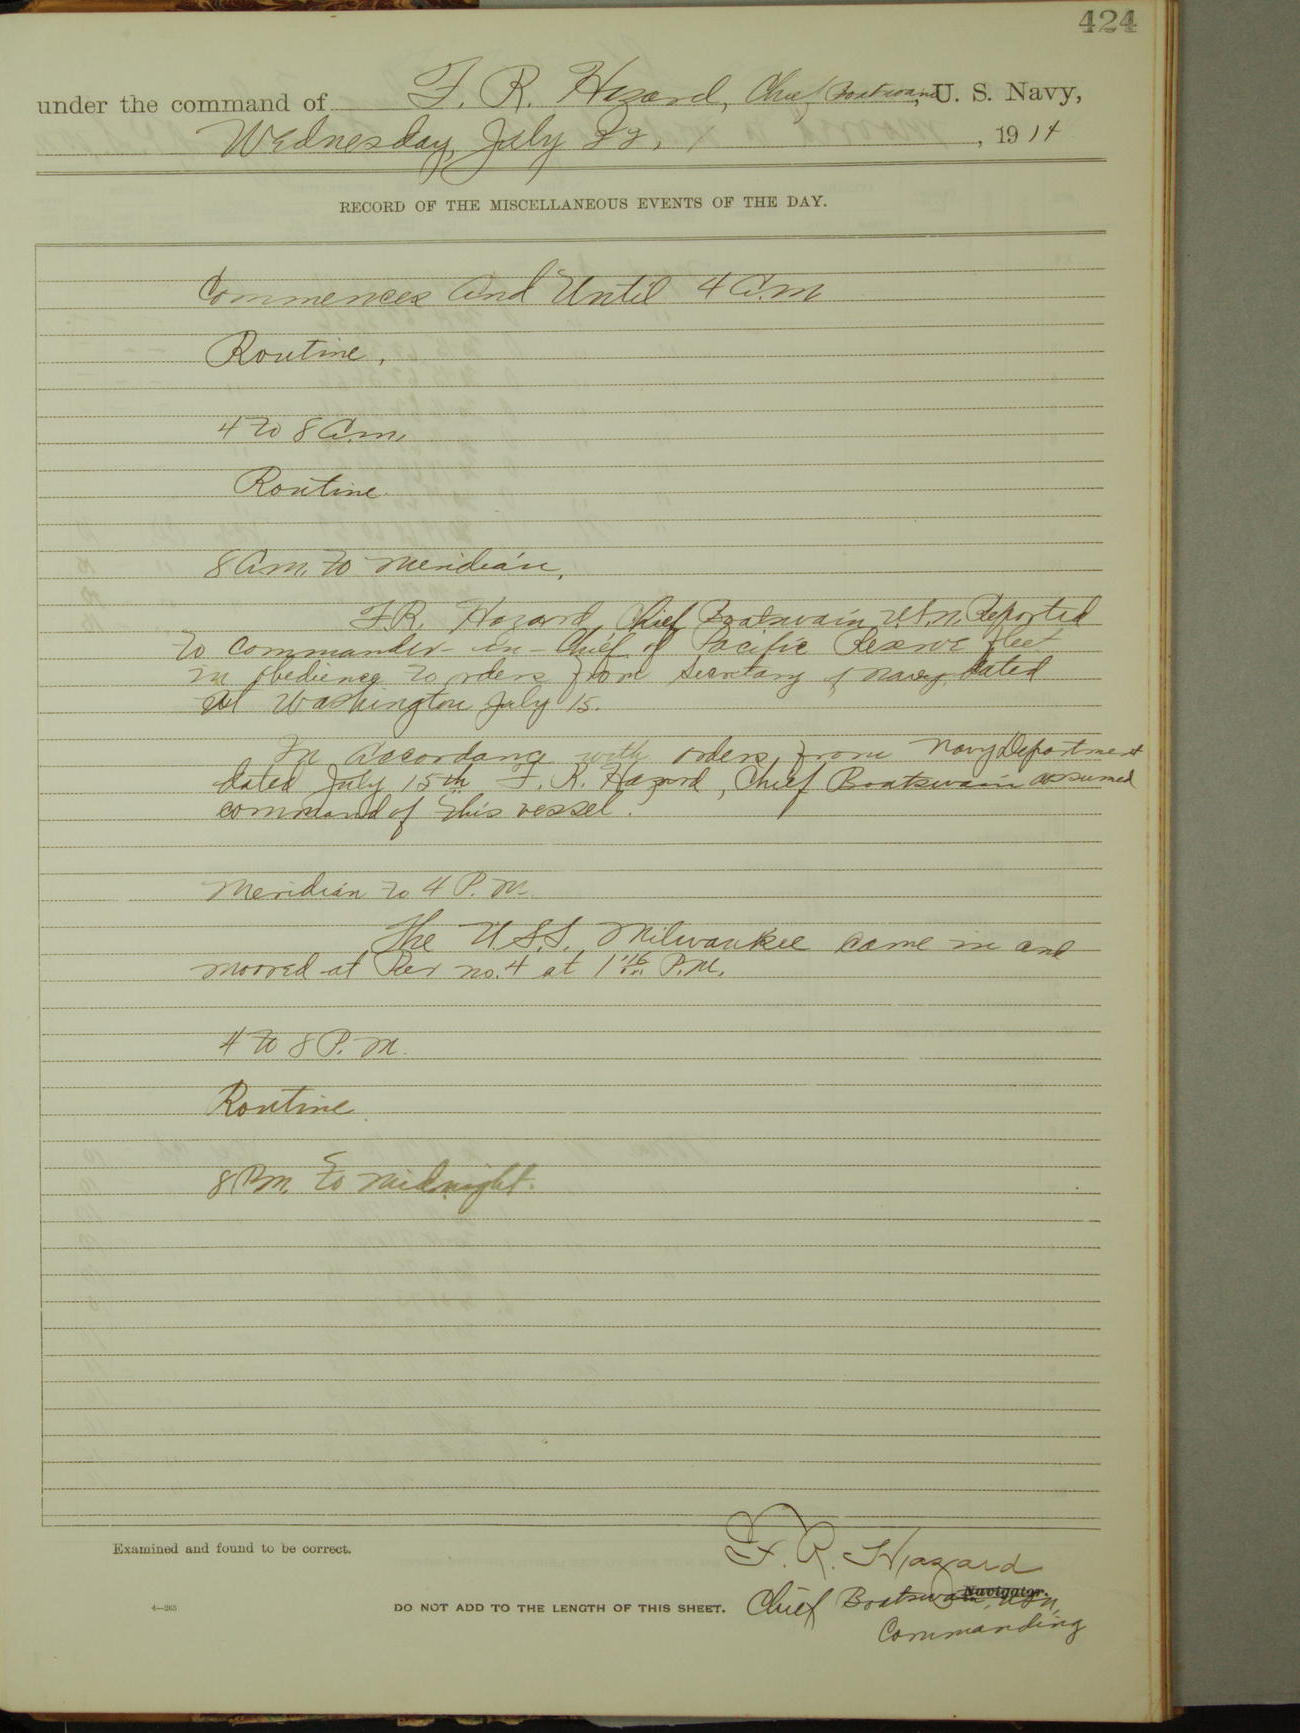 424
under the command of F. R. Hazard, Chief Boatswain, U. S. Navy,
Wednesday, July 22, , 1914
RECORD OF THE MISCELLANEOUS EVENTS OF THE DAY.
Commences and Until 4 a.m
Routine,
4 to 8 a.m.
Routine.
8 a.m. to meridian,
F.R. Hazard, Chief Boatswain U.S.N. Reported
to Commander-in-Chief of Pacific Reserve fleet
in obedience to orders from Secretary of Navy dated
at Washington July 15.
In accordance with orders from Navy Department
dated July 15th F. R. Hazard, Chief Boatswain assumed
command of this vessel.
Meridian to 4 P.M.
The U.S.S. Milwaukee came in and
moored at Pier no. 4 at 1 P.M.
4 to 8 P.M.
Routine
8 P.m. to midnight.
F. R. Hazard
Examined and found to be correct.
Navigator.
Chief Boatswain, U.S.N,
4—265
DO NOT ADD TO THE LENGTH OF THIS SHEET.
Commanding